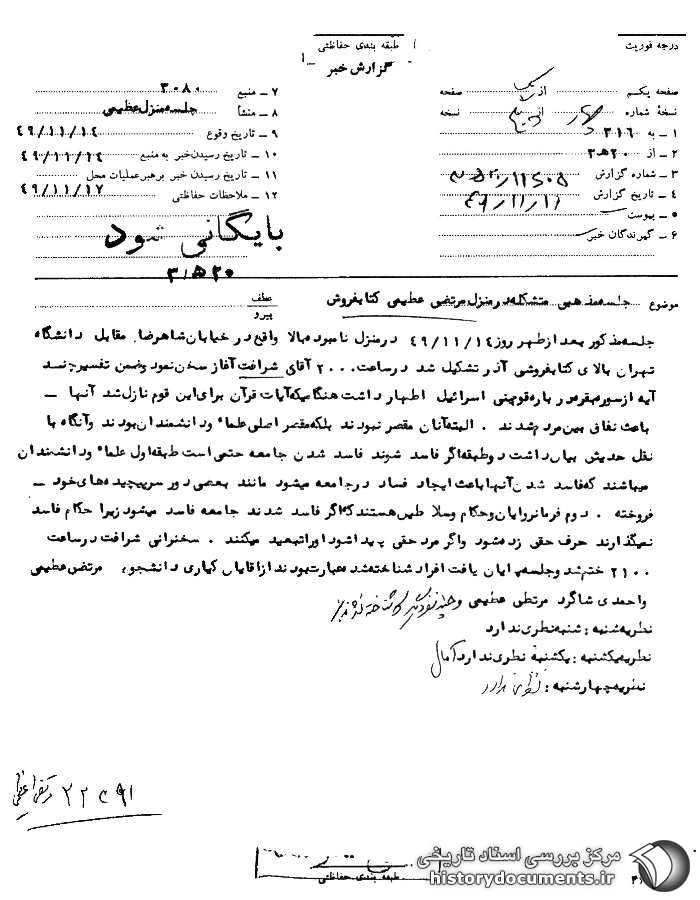 درجه فوریت
طبقه بندی حفاظتی
گزارش خبر
صفحه یکم از صفحه
نسخهٔ شماره چهار از نسخه
۱ ـ به ۳۱۶
۲ ـ از ۲۰ه۳
۳ ـ شماره گزارش
۴ ـ تاریخ گزارش
۵ ـ پیوست
۶ ـ گیرندگان خبر
۷ ـ منبع ۳۰۸۰
۸ ـ منشأ جلسه منزل عظیمی
۹ ـ تاریخ وقوع ۴۹/۱۱/۱۴
۱۰ ـ تاریخ رسیدن خبر به منبع ۴۹/۱۱/۱۴
۱۱ ـ تاریخ رسیدن خبر برهبر عملیات محل ۴۹/۱۱/۱۷
۱۲ ـ ملاحظات حفاظتی
بایگانی شود
۲۰ه۳
موضوع جلسه مذهبی متشکله در منزل مرتضی عظیمی کتابفروش
عطف
پیرو
جلسه مذکور بعد از ظهر روز ۴۹/۱۱/۱۴ در منزل نامبرده بالا واقع در خیابان شاهرضا مقابل دانشگاه
تهران بالای کتابفروشی آذر تشکیل شد در ساعت ۲۰۰۰ آقای شرافت آغاز سخن نمود وضمن تفسیر چند
آیه از سوره بقره در باره قوم بنی اسرائیل اظهار داشت هنگامیکه آیات قرآن برای این قوم نازل شد آنها ـ
باعث نفاق بین مردم شدند . البته آنان مقصر نبودند بلکه مقصر اصلی علماء و دانشمندان بودند وآنگاه با
نقل حدیش بیان داشت دو طبقه اگر فاسد شوند فاسد شدن جامعه حتمی است طبقه اول علماء ودانشمندان
میباشند که فاسد شدن آنها باعث ایجاد فساد در جامعه میشود مانند بعضی دور سرپیچیده های خود ـ
فروخته . دوم فرمانروایان وحکام وسلاطین هستند که اگر فاسد شدند جامعه فاسد میشود زیرا حکام فاسد
نمیگذارند حرف حقی زده شود واگر مرد حقی پیدا شود اورا تبعید میکنند . سخنرانی شرافت در ساعت
۲۱۰۰ ختم شد وجلسه پایان یافت افراد شناخته شده عبارت بودند از اقایان کیاری دانشجو ، مرتضی عظیمی
واحمدی شاگرد مرتضی عظیمی و چند نفر دیگر که شناخته نشدند
نظریه شنبه : شنبه نظری ندارد
نظریه یکشنبه : یکشنبه نظری ندارد آمال
نظریه چهارشنبه : نظری ندارد
طبقه بندی حفاظتی
مرکز بررسی اسناد تاریخی
historydocuments.ir